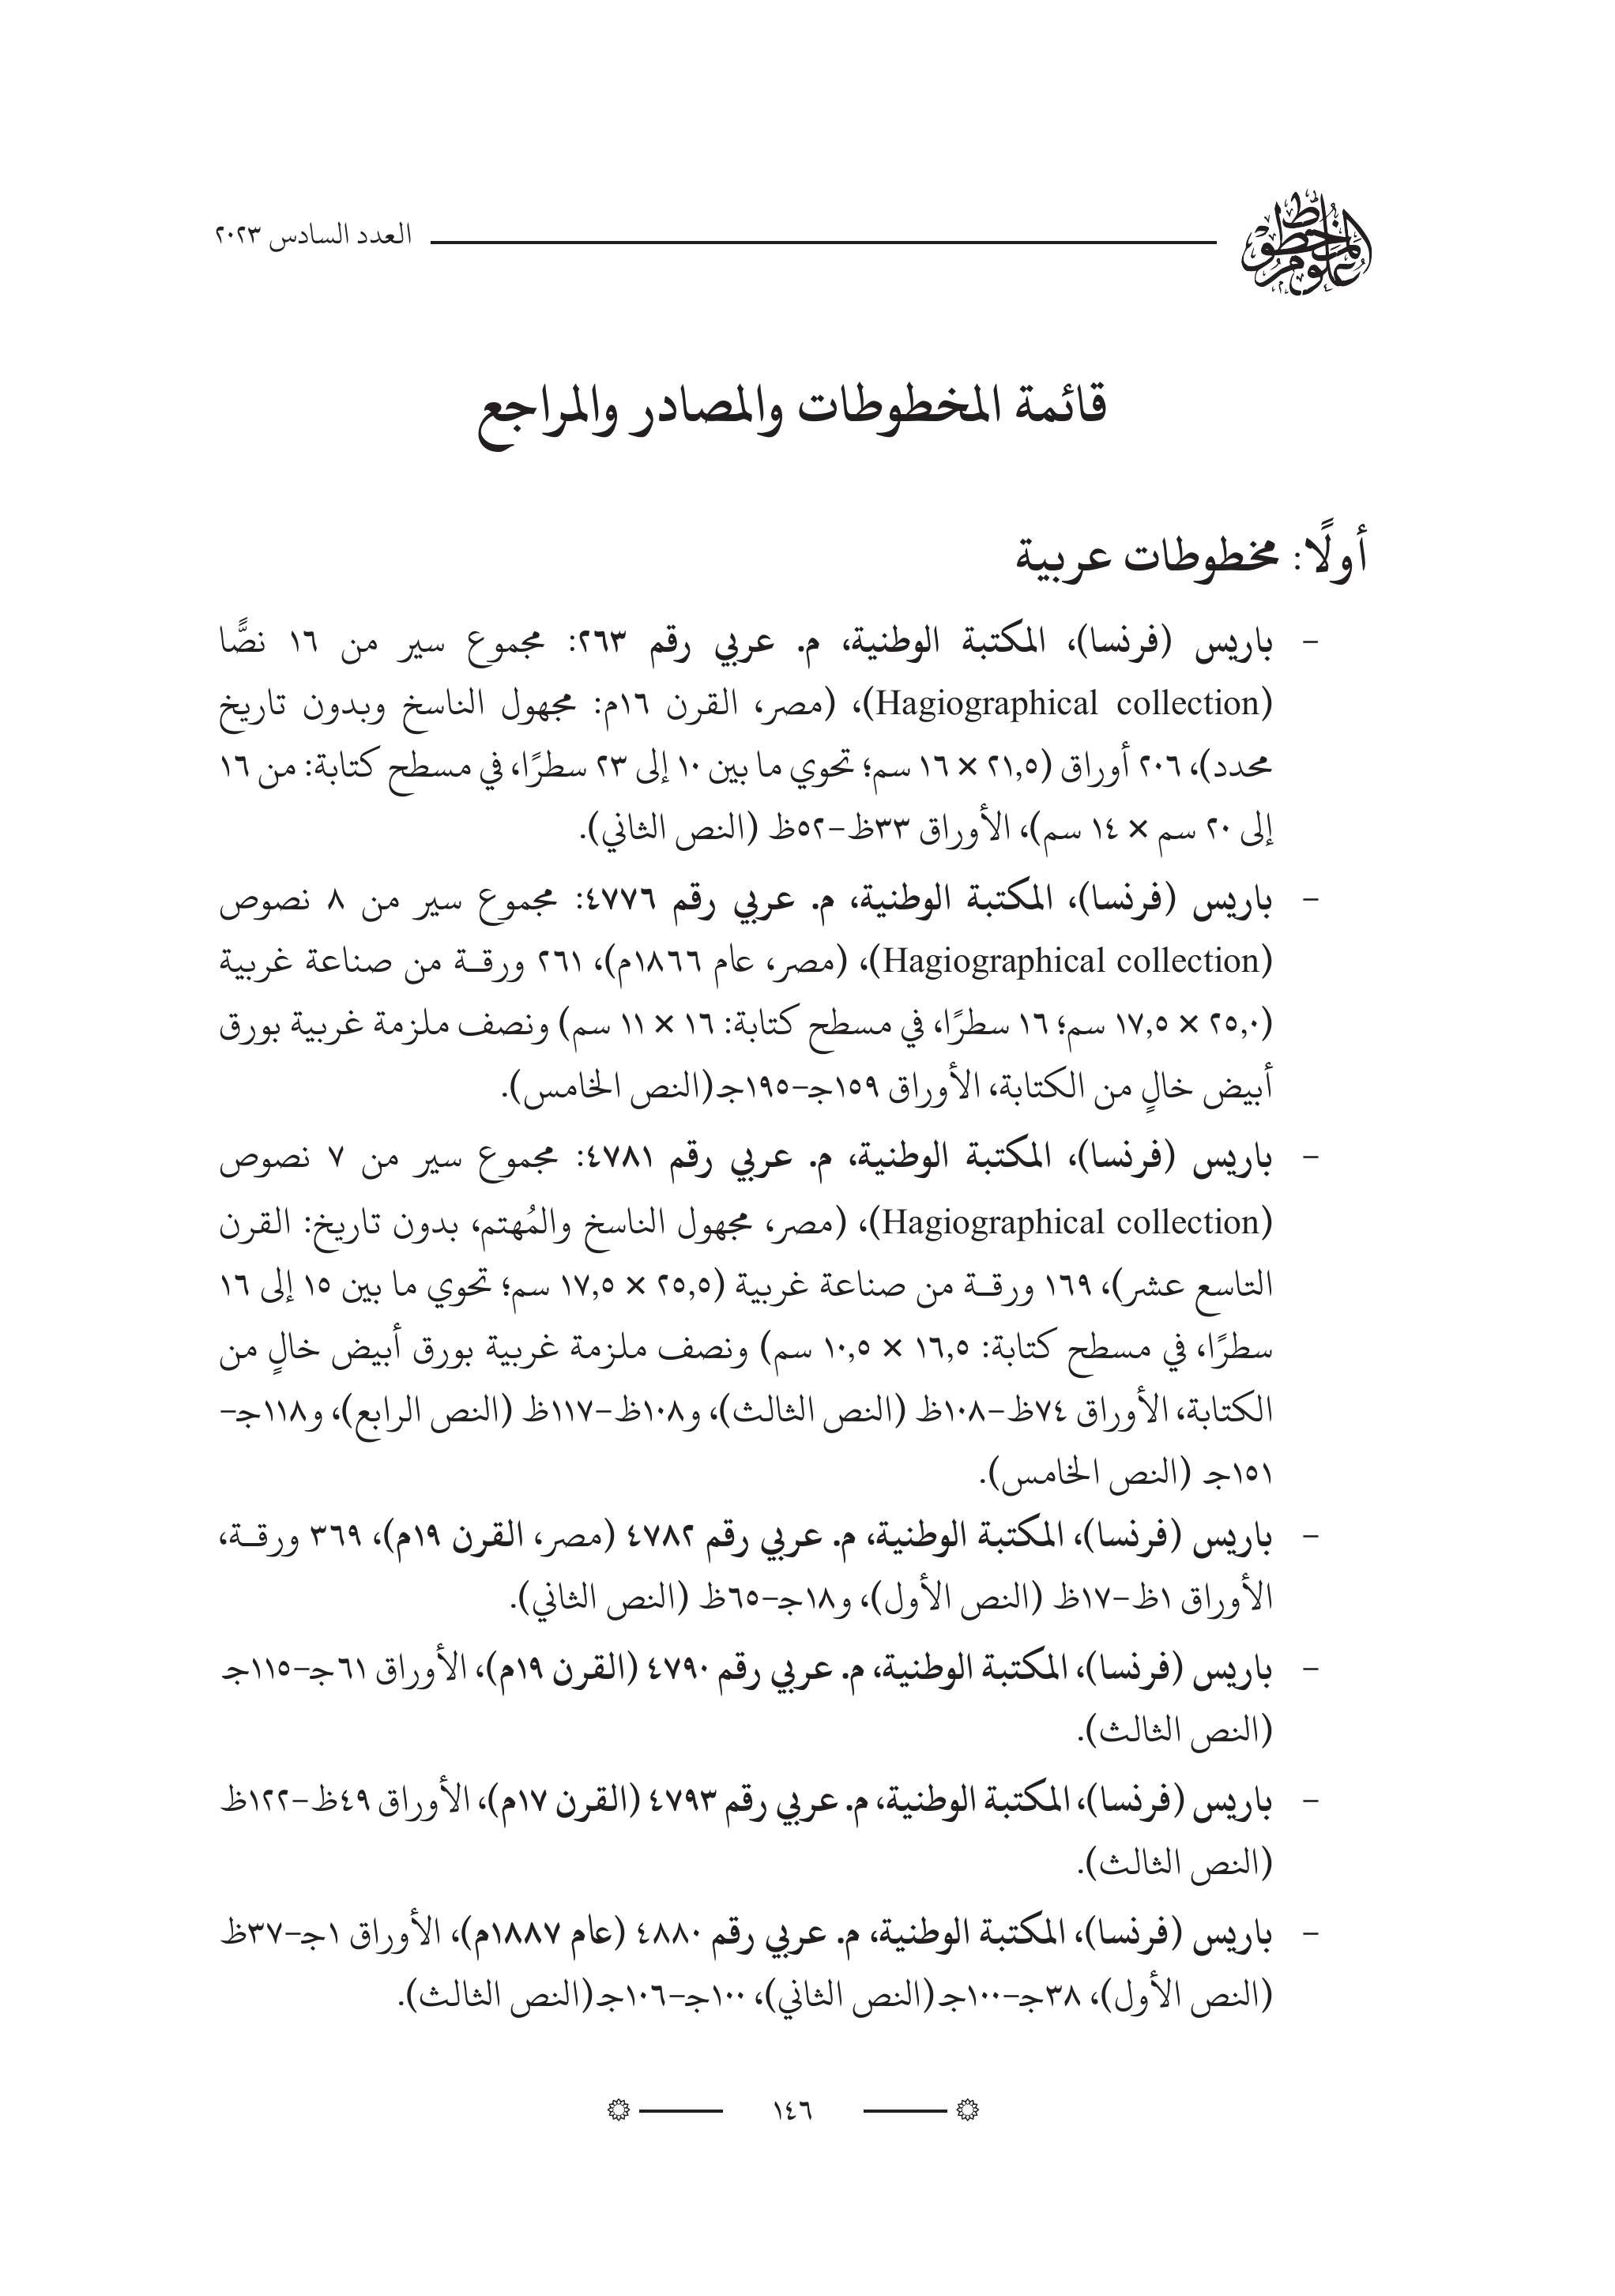 علوم المخطوط
العدد السادس ٢٠٢٣
قائمة المخطوطات والمصادر والمراجع
أولًا: مخطوطات عربية
- باريس (فرنسا)، المكتبة الوطنية، م. عربي رقم ٢٦٣: مجموع سير من ١٦ نصًّا
(Hagiographical collection)، (مصر، القرن ١٦م: مجهول الناسخ وبدون تاريخ
محدد)، ٢٠٦ أوراق (٢١,٥ × ١٦ سم؛ تحوي ما بين ١٠ إلى ٢٣ سطرًا، في مسطح كتابة: من ١٦
إلى ٢٠ سم × ١٤ سم)، الأوراق ٣٣ظ-٥٢ظ (النص الثاني).
- باريس (فرنسا)، المكتبة الوطنية، م. عربي رقم ٤٧٧٦: مجموع سير من ٨ نصوص
(Hagiographical collection)، (مصر، عام ١٨٦٦م)، ٢٦١ ورقـة من صناعة غربية
(٢٥,٠ × ١٧,٥ سم؛ ١٦ سطرًا، في مسطح كتابة: ١٦ × ١١ سم) ونصف ملزمة غربية بورق
أبيض خالٍ من الكتابة، الأوراق ١٥٩جـ-١٩٥جـ(النص الخامس).
- باريس (فرنسا)، المكتبة الوطنية، م. عربي رقم ٤٧٨١: مجموع سير من ٧ نصوص
(Hagiographical collection)، (مصر، مجهول الناسخ والمُهتم، بدون تاريخ: القرن
التاسع عشر)، ١٦٩ ورقـة من صناعة غربية (٢٥,٥ × ١٧,٥ سم؛ تحوي ما بين ١٥ إلى ١٦
سطرًا، في مسطح كتابة: ١٦,٥ × ١٠,٥ سم) ونصف ملزمة غربية بورق أبيض خالٍ من
الكتابة، الأوراق ٧٤ظ-١٠٨ظ (النص الثالث)، و١٠٨ظ-١١٧ظ (النص الرابع)، و١١٨جـ-
١٥١جـ (النص الخامس).
- باريس (فرنسا)، المكتبة الوطنية، م. عربي رقم ٤٧٨٢ (مصر، القرن ١٩م)، ٣٦٩ ورقـة،
الأوراق ١ظ-١٧ظ (النص الأول)، و١٨جـ-٦٥ظ (النص الثاني).
- باريس (فرنسا)، المكتبة الوطنية، م. عربي رقم ٤٧٩٠ (القرن ١٩م)، الأوراق ٦١جـ-١١٥جـ
(النص الثالث).
- باريس (فرنسا)، المكتبة الوطنية، م. عربي رقم ٤٧٩٣ (القرن ١٧م)، الأوراق ٤٩ظ-١٢٢ظ
(النص الثالث).
- باريس (فرنسا)، المكتبة الوطنية، م. عربي رقم ٤٨٨٠ (عام ١٨٨٧م)، الأوراق ١جـ-٣٧ظ
(النص الأول)، ٣٨جـ-١٠٠جـ(النص الثاني)، ١٠٠جـ-١٠٦جـ(النص الثالث).
١٤٦